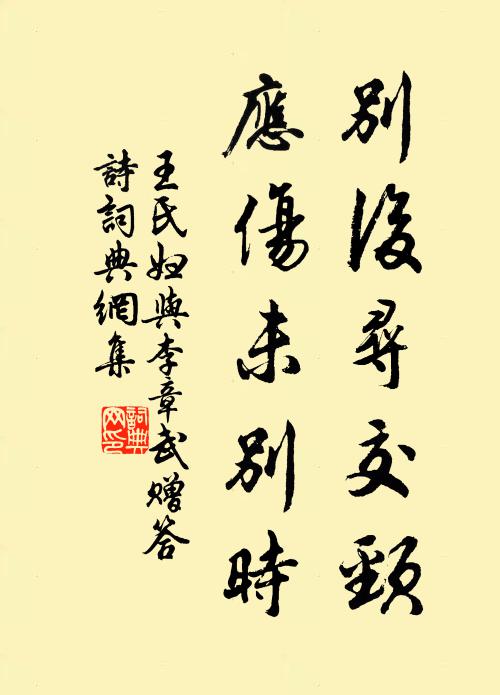 別後尋交頸
應傷未別時
王氏婦與李章武贈答
詩詞典網集
詞典網印